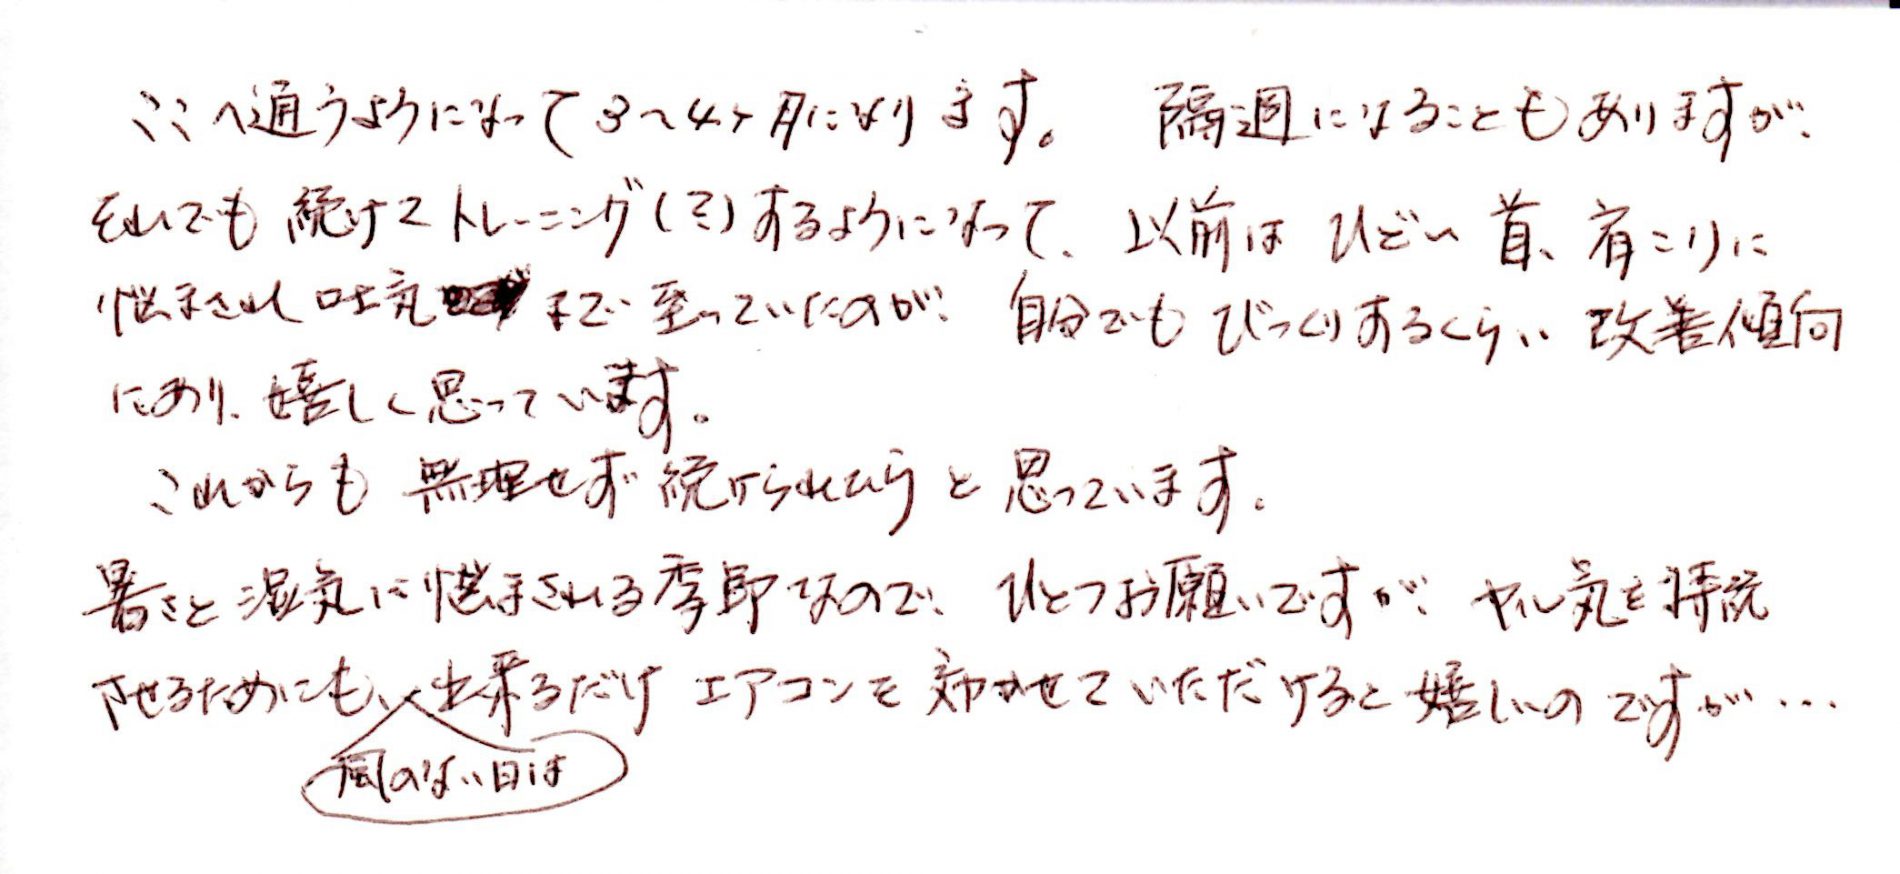 ここへ通うようになって3〜4ヶ月になります。 隔週になることもありますが、
それでも続けてトレーニング(ミ)するようになって、以前はひどい首、肩こりに
悩まされ吐気まで至っていたのが、自分でもびっくりするくらい改善傾向
にあり、嬉しく思っています。
これからも無理せず続けられたらと思っています。
暑さと湿気に悩まされる季節なので、ひとつお願いですが、ヤル気を持続
させるためにも、出来るだけエアコンを効かせていただけると嬉しいのですが…
風のない日は